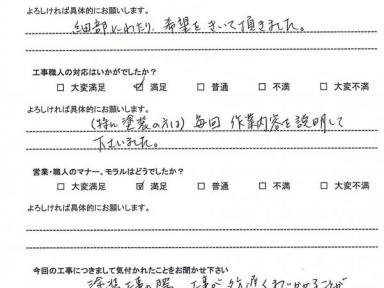 よろしければ具体的にお願いします。
細部にわたり、希望をきいて頂きました。
工事職人の対応はいかがでしたか?
□ 大変満足 ☑ 満足 □ 普通 □ 不満 □ 大変不満
よろしければ具体的にお願いします。
(特に塗装の方は) 毎回 作業内容を説明して
下さいました。
営業・職人のマナー、モラルはどうでしたか?
□ 大変満足 ☑ 満足 □ 普通 □ 不満 □ 大変不満
よろしければ具体的にお願いします。
今回の工事につきまして気付かれたことをお聞かせ下さい
塗装工事の際、工事が